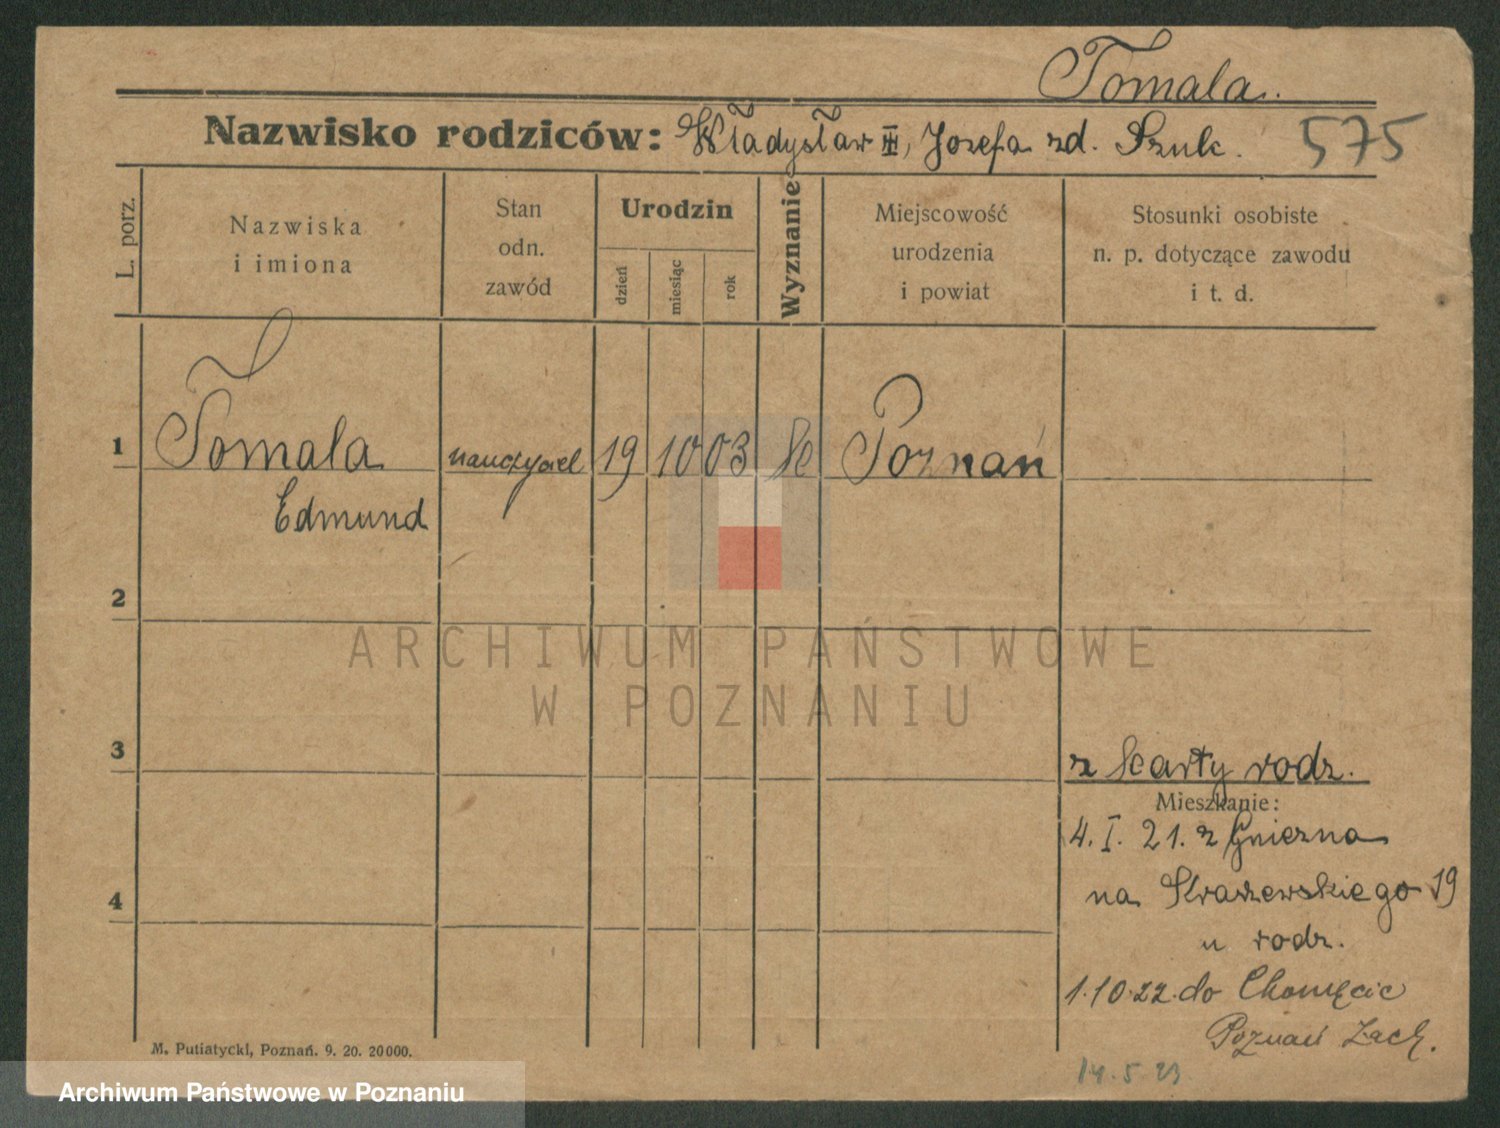 Tomala.
Nazwisko rodziców: Władysław III, Jozefa zd. Szulc. 575
L. porz.
Nazwiska
i imiona
Stan
odn.
zawód
Urodzin
dzień
miesiąc
rok
Wyznanie
Miejscowość
urodzenia
i powiat
Stosunki osobiste
n. p. dotyczące zawodu
i t. d.
1 Tomala nauczyciel 19 10 03 k Poznań
Edmund
2
ARCHIWUM PAŃSTWOWE
W POZNANIU
3
z karty rodz.
Mieszkanie:
4. I. 21. z Gniezna
4
na Kraszewskiego 19
u rodz.
1.10.22. do Chomęcic
Poznań Zach.
M. Putiatycki, Poznań. 9. 20. 20000.
14.5.23.
Archiwum Państwowe w Poznaniu